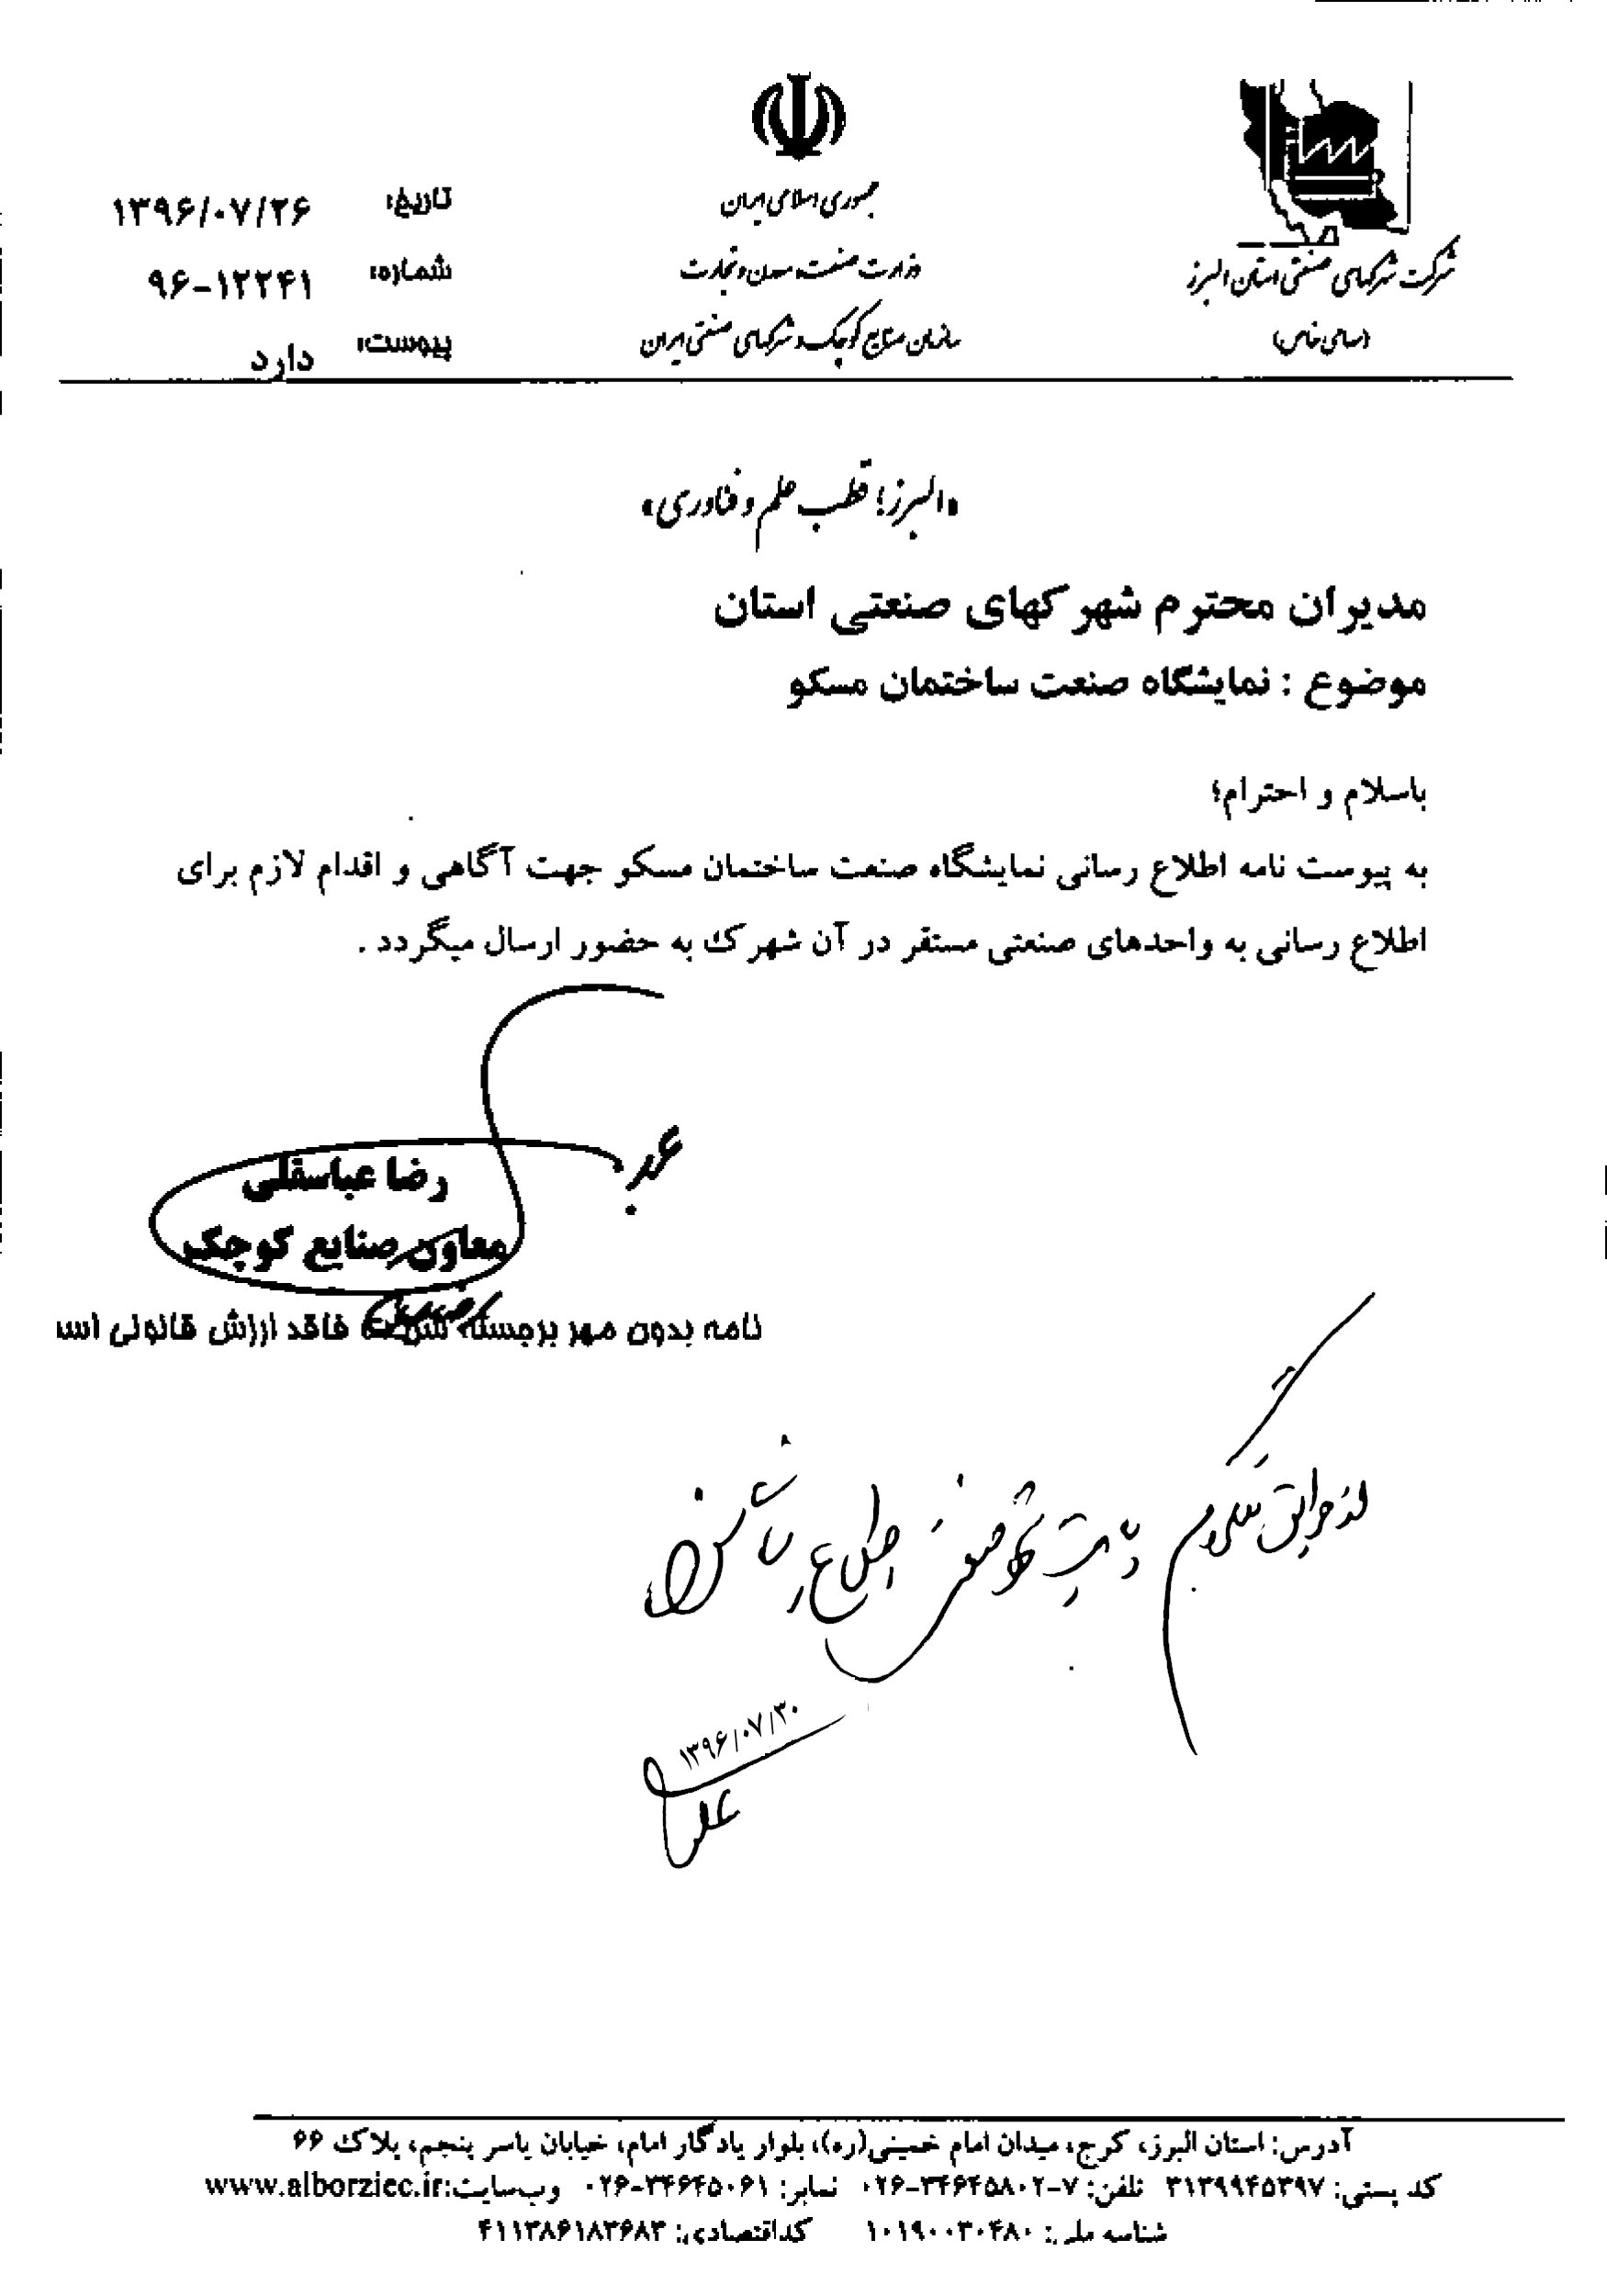 شرکت شهرکهای صنعتی استان البرز
(سهامی خاص)
جمهوری اسلامی ایران
وزارت صنعت، معدن و تجارت
سازمان صنایع کوچک و شهرکهای صنعتی ایران
تاریخ: ۱۳۹۶/۰۷/۲۶
شماره: ۹۶-۱۲۲۴۱
پیوست: دارد
«البرز؛ قطب علم و فناوری»
مدیران محترم شهرکهای صنعتی استان
موضوع : نمایشگاه صنعت ساختمان مسکو
باسلام و احترام؛
به پیوست نامه اطلاع رسانی نمایشگاه صنعت ساختمان مسکو جهت آگاهی و اقدام لازم برای
اطلاع رسانی به واحدهای صنعتی مستقر در آن شهرک به حضور ارسال میگردد .
رضا عباسقلی
معاون صنایع کوچک
نامه بدون مهر برجسته فاقد ارزش قانونی اس
از طریق اطلاع
۱۳۹۶/۰۷/۳۰
آدرس: استان البرز، کرج، میدان امام خمینی(ره)، بلوار یادگار امام، خیابان یاسر پنجم، پلاک ۶۶
کد پستی: ۳۱۳۹۹۴۵۳۹۷ تلفن: ۷-۰۲۶-۳۴۶۴۵۸۰۲ نمابر: ۰۲۶-۳۴۶۴۵۰۶۱ وب‌سایت:www.alborziec.ir
شناسه ملی: ۱۰۱۹۰۰۳۰۴۸۰ کداقتصادی: ۴۱۱۳۸۶۱۸۳۶۸۳